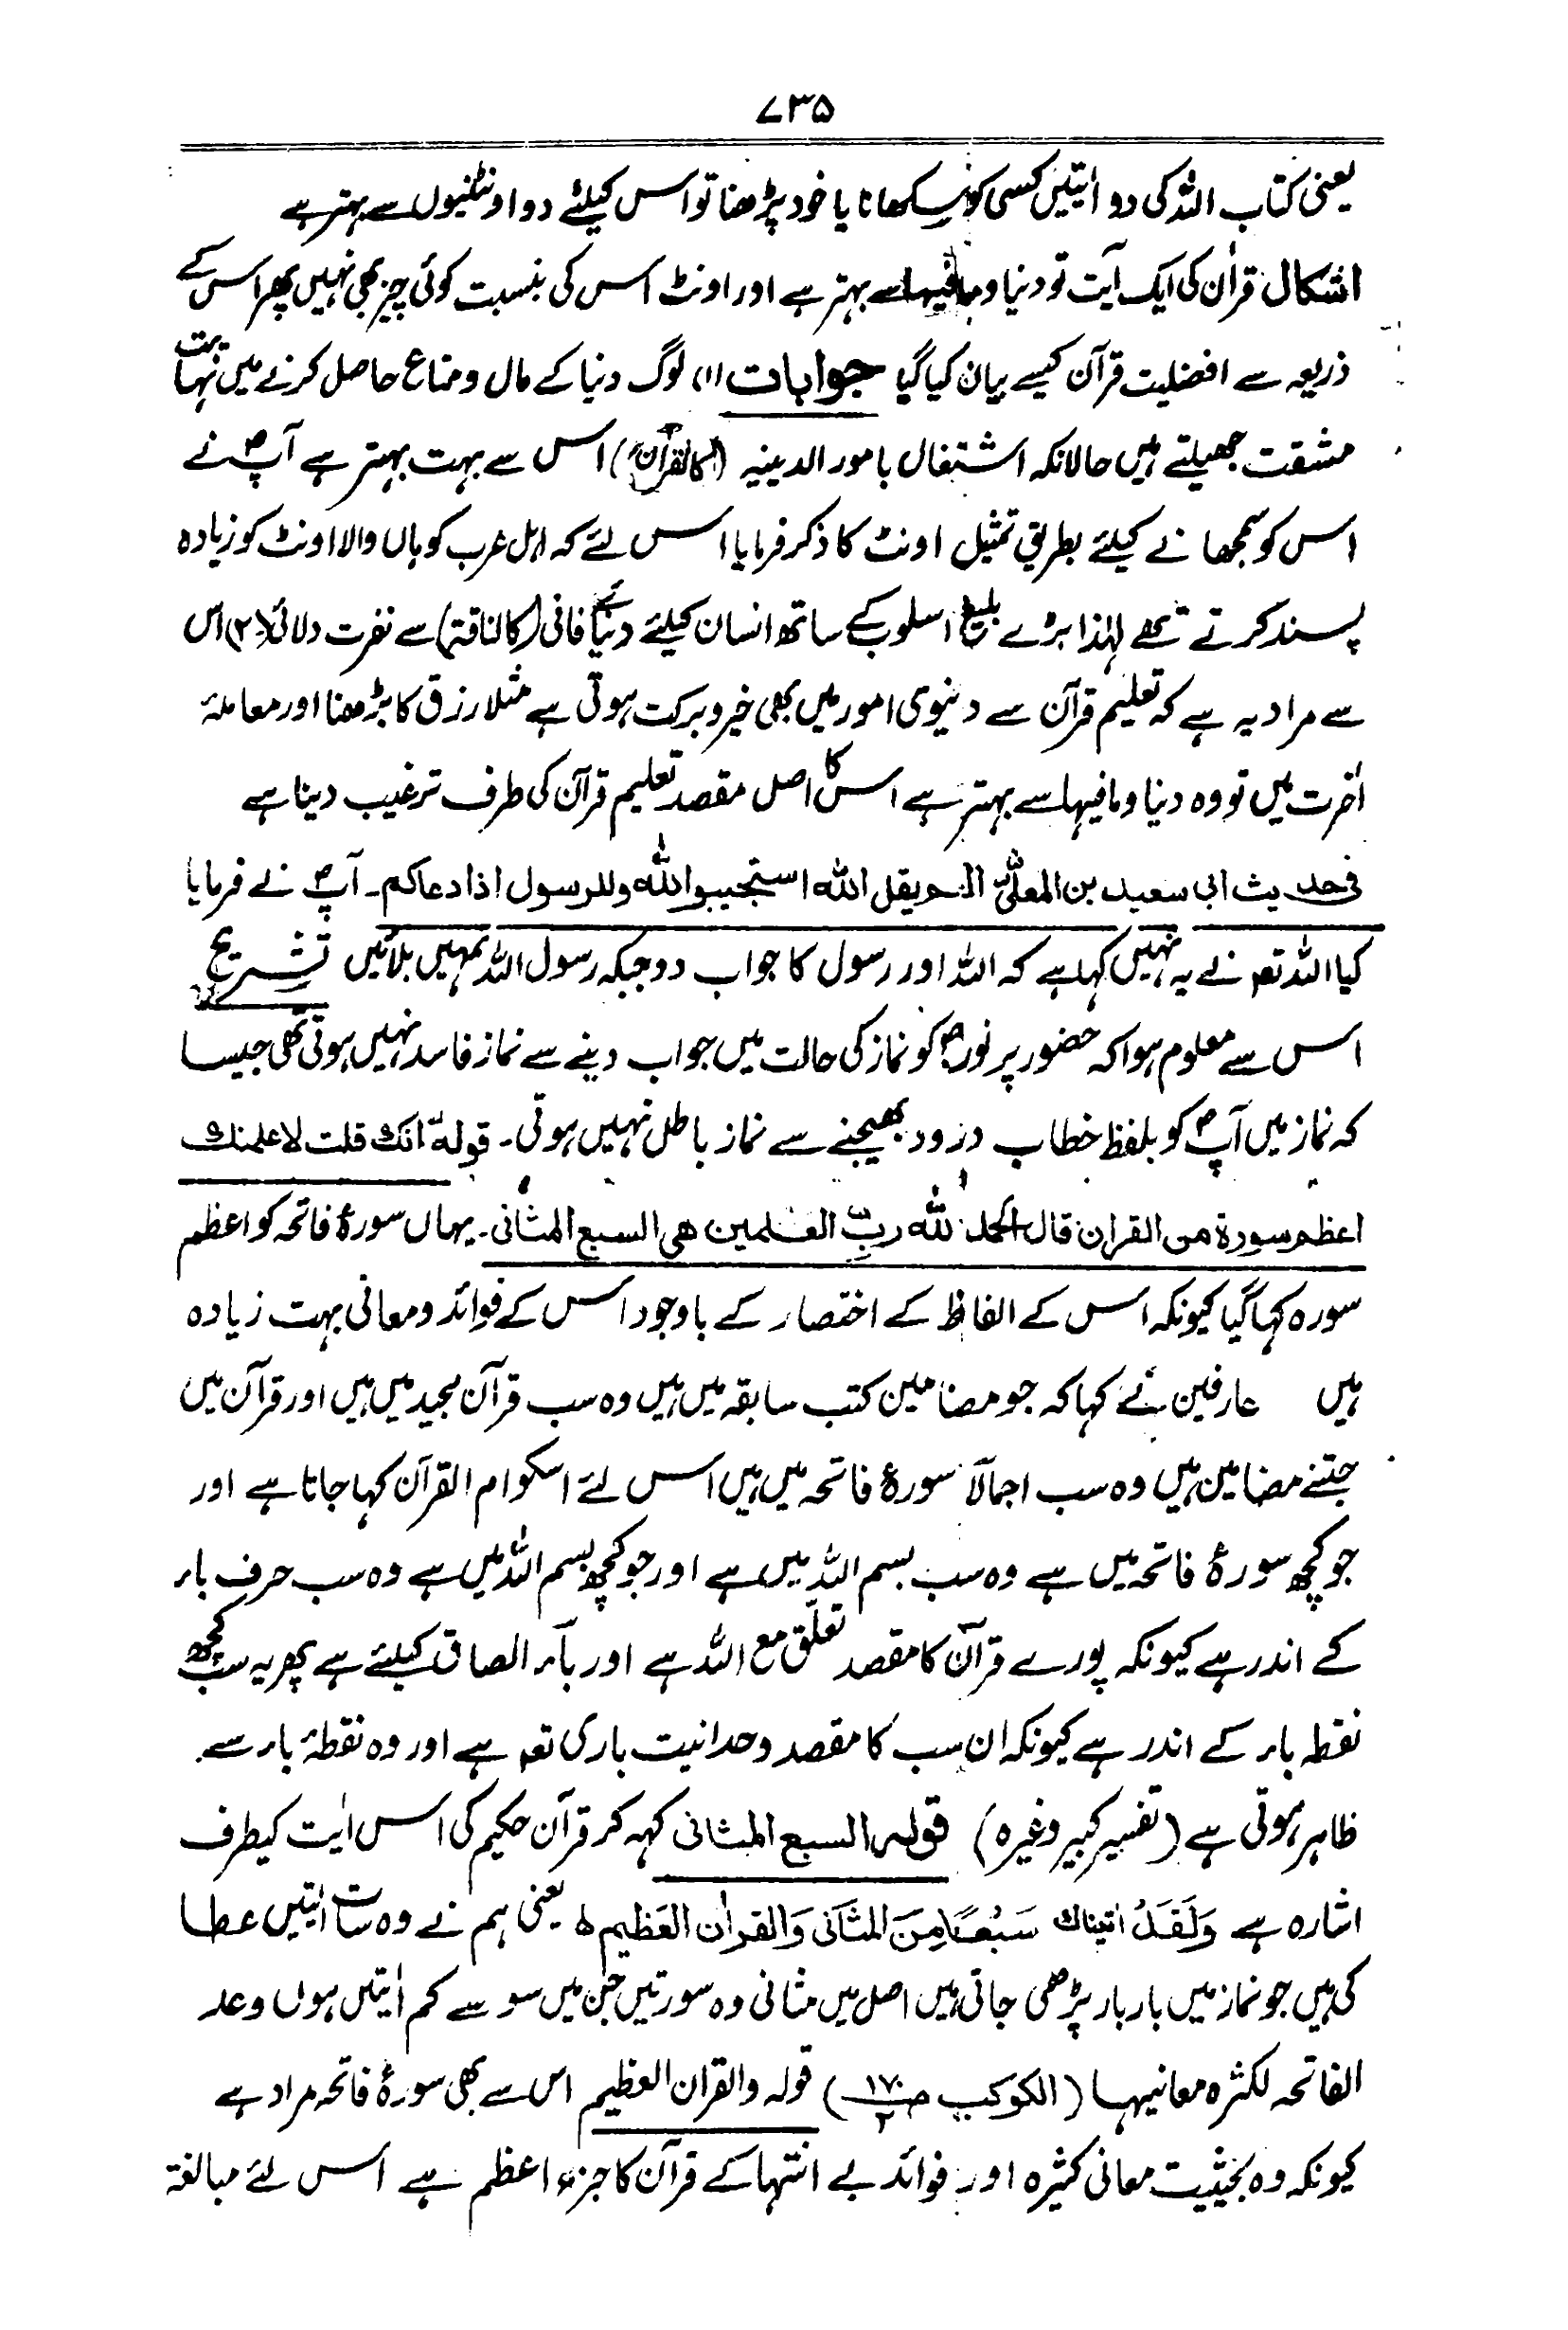 ۷۳۵
یعنی کتاب اللہ کی دو آیتیں کسی کو سکھانا یا خود پڑھنا تو اس کیلئے دو اونٹنیوں سے بہتر ہے
اشکال قرآن کی ایک آیت تو دنیا و مافیہا سے بہتر ہے اور اونٹ اس کی بنسبت کوئی چیز بھی نہیں پھر اس کے
ذریعہ سے افضلیت قرآن کیسے بیان کیا گیا جوابات (۱) لوگ دنیا کے مال و متاع حاصل کرنے میں نہایت
مشقت جھیلتے ہیں حالانکہ اشتغال بامور الدینیہ (کالقرآن) اس سے بہت بہتر ہے آپؐ نے
اس کو سمجھانے کیلئے بطریق تمثیل اونٹ کا ذکر فرمایا اس لئے کہ اہل عرب کوہاں والا اونٹ کو زیادہ
پسند کرتے تھے لہٰذا بڑے بلیغ اسلوب کے ساتھ انسان کیلئے دنیائے فانی (کالناقۃ) سے نفرت دلائی (۲) اس
سے مراد یہ ہے کہ تعلیم قرآن سے دنیوی امور میں بھی خیر و برکت ہوتی ہے مثلا رزق کا بڑھنا اور معاملۂ
آخرت میں تو وہ دنیا و مافیہا سے بہتر ہے اس کا اصل مقصد تعلیم قرآن کی طرف ترغیب دینا ہے
فی حدیث ابی سعید بن المعلّیؓ الم یقل اللہ استجیبوا للہ وللرسول اذا دعاکم۔ آپؐ نے فرمایا
کیا اللہ تعہ نے یہ نہیں کہا ہے کہ اللہ اور رسول کا جواب دو جبکہ رسول اللہ تمہیں بلائیں تشریح
اس سے معلوم ہوا کہ حضور پر نورؐ کو نماز کی حالت میں جواب دینے سے نماز فاسد نہیں ہوتی تھی جیسا
کہ نماز میں آپؐ کو بلفظ خطاب درود بھیجنے سے نماز باطل نہیں ہوتی۔ قولہٗ انک قلت لاعلمنک
اعظم سورۃ من القراٰن قال الحمد للہ ربّ العٰلمین ھی السبع المثانی۔ یہاں سورۂ فاتحہ کو اعظم
سورہ کہا گیا کیونکہ اس کے الفاظ کے اختصار کے باوجود اس کے فوائد و معانی بہت زیادہ
ہیں عارفین نے کہا کہ جو مضامین کتب سابقہ میں ہیں وہ سب قرآن مجید میں ہیں اور قرآن میں
جتنے مضامین ہیں وہ سب اجمالاً سورۂ فاتحہ میں ہیں اس لئے اسکو ام القرآن کہا جاتا ہے اور
جو کچھ سورۂ فاتحہ میں ہے وہ سب بسم اللہ میں ہے اور جو کچھ بسم اللہ میں ہے وہ سب حرف باء
کے اندر ہے کیونکہ پورے قرآن کا مقصد تعلّق مع اللہ ہے اور باء الصاق کیلئے ہے پھر یہ سب کچھ
نقطہ باء کے اندر ہے کیونکہ ان سب کا مقصد وحدانیت باری تعہ ہے اور وہ نقطۂ باء سے
ظاہر ہوتی ہے (تفسیر کبیر وغیرہ) قولہ السبع المثانی کہہ کر قرآن حکیم کی اس آیت کیطرف
اشارہ ہے وَلَقَدْ اٰتیناک سَبْعًا مِنَ المثَانی وَالقراٰن العَظیم ط یعنی ہم نے وہ سات آیتیں عطا
کی ہیں جو نماز میں بار بار پڑھی جاتی ہیں اصل میں مثانی وہ سورتیں جن میں سو سے کم آیتیں ہوں وعد
الفاتحہ لکثرہ معانیہا (الکوکب ص ۱۷۰/۲) قولہ والقراٰن العظیم اس سے بھی سورۂ فاتحہ مراد ہے
کیونکہ وہ بحیثیت معانی کثیرہ اور فوائد بے انتہا کے قرآن کا جزء اعظم ہے اس لئے مبالغۃ